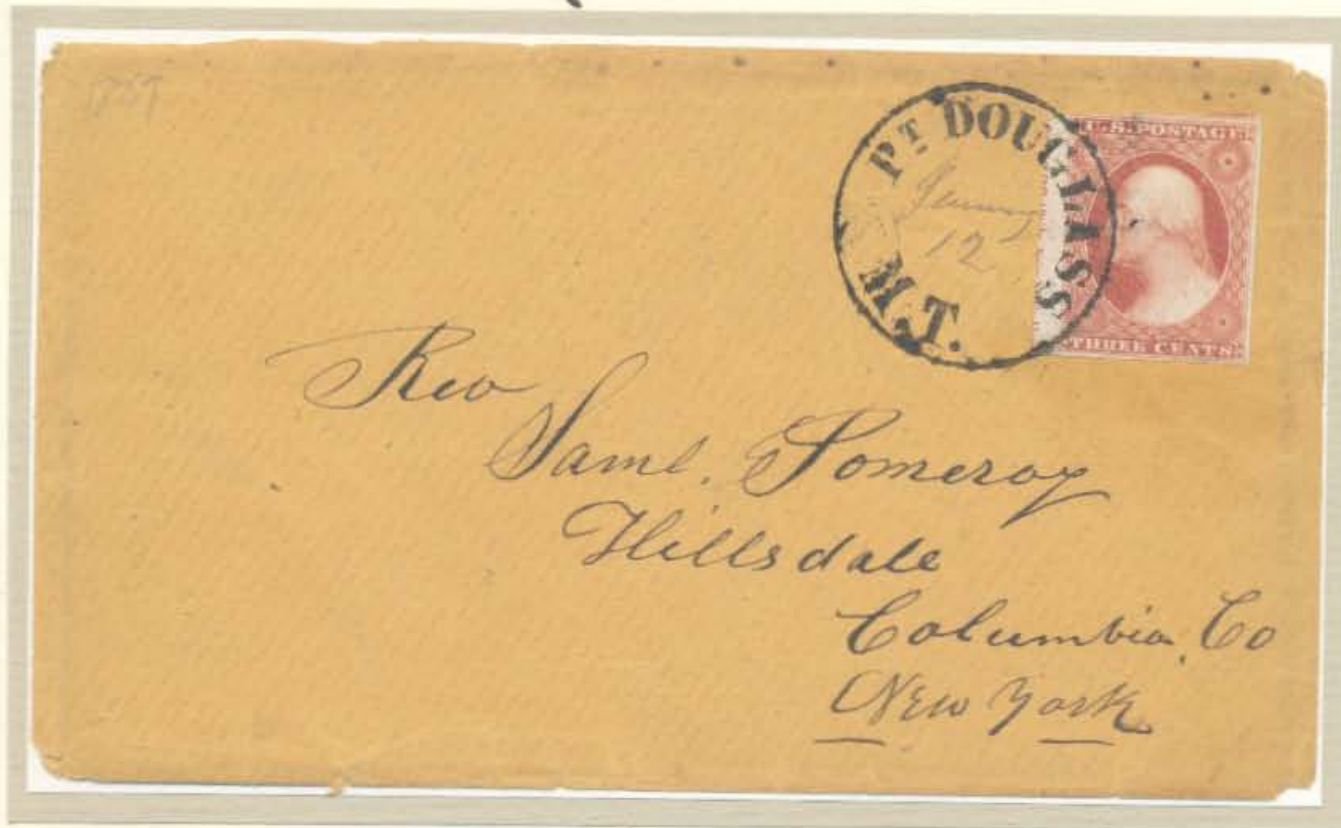 PT DOUGLASS
M.T.
12
U.S. POSTAGE
THREE CENTS
Rev
Saml. Pomeroy
Hillsdale
Columbia Co
New York